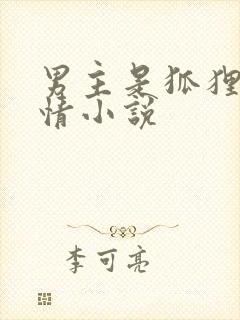 男主是狐狸
情小説
李可亮